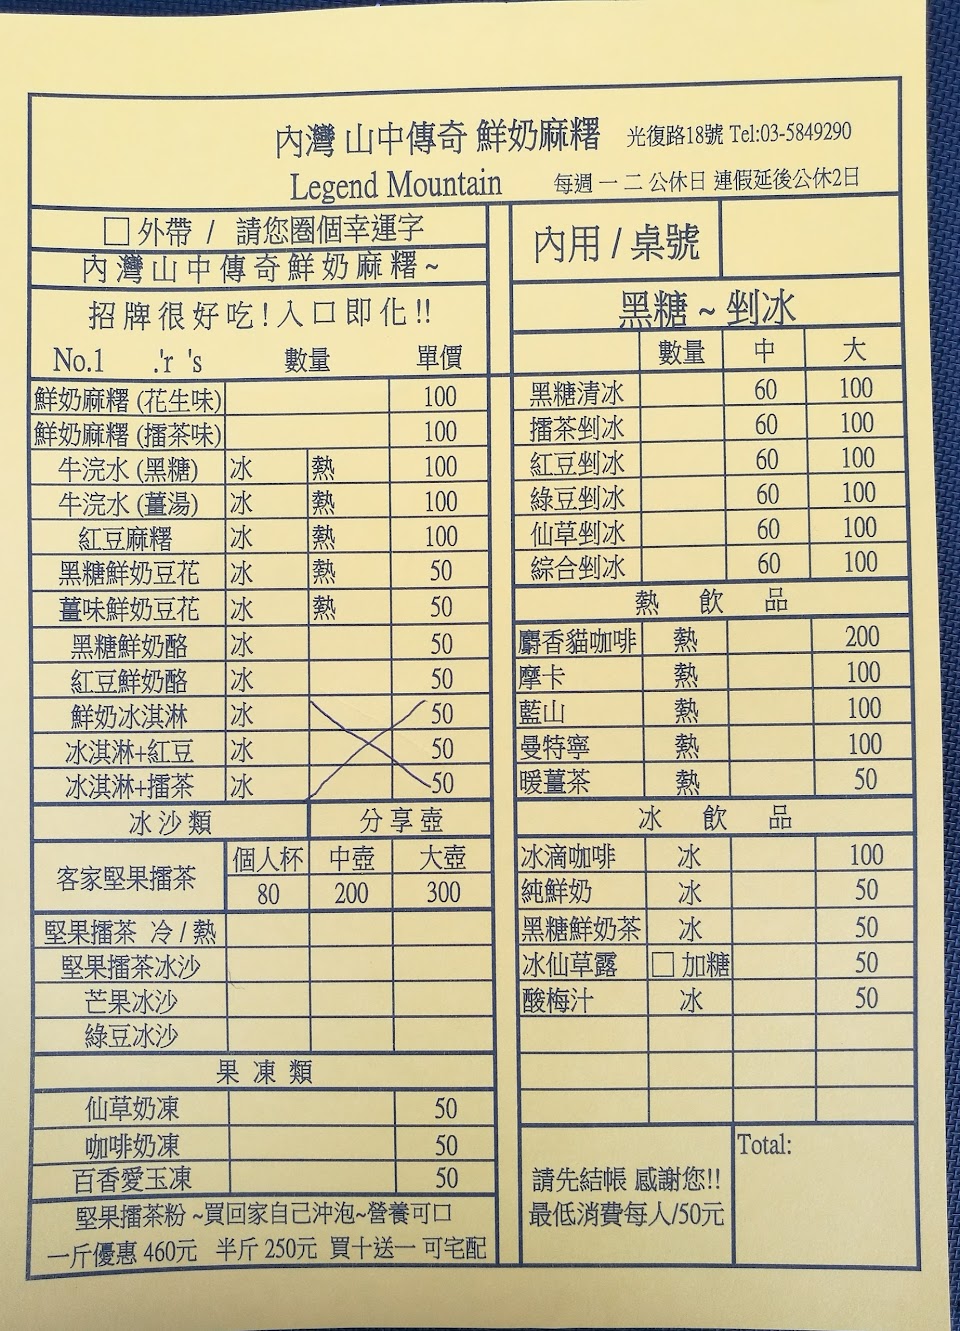 內灣 山中傳奇 鮮奶麻糬 光復路18號 Tel:03-5849290
Legend Mountain 每週 一 二 公休日 連假延後公休2日
□外帶 / 請您圈個幸運字
內灣山中傳奇鮮奶麻糬~
招牌很好吃!入口即化!!
No.1 .'r 's 數量 單價
鮮奶麻糬 (花生味) 100
鮮奶麻糬 (擂茶味) 100
牛浣水 (黑糖) 冰 熱 100
牛浣水 (薑湯) 冰 熱 100
紅豆麻糬 冰 熱 100
黑糖鮮奶豆花 冰 熱 50
薑味鮮奶豆花 冰 熱 50
黑糖鮮奶酪 冰 50
紅豆鮮奶酪 冰 50
鮮奶冰淇淋 冰 50
冰淇淋+紅豆 冰 50
冰淇淋+擂茶 冰 50
冰沙類 分享壺
客家堅果擂茶 個人杯 中壺 大壺
80 200 300
堅果擂茶 冷 / 熱
堅果擂茶冰沙
芒果冰沙
綠豆冰沙
果凍類
仙草奶凍 50
咖啡奶凍 50
百香愛玉凍 50
堅果擂茶粉 ~買回家自己沖泡~營養可口
一斤優惠 460元 半斤 250元 買十送一 可宅配
內用 / 桌號
黑糖 ~ 剉冰
數量 中 大
黑糖清冰 60 100
擂茶剉冰 60 100
紅豆剉冰 60 100
綠豆剉冰 60 100
仙草剉冰 60 100
綜合剉冰 60 100
熱飲品
麝香貓咖啡 熱 200
摩卡 熱 100
藍山 熱 100
曼特寧 熱 100
暖薑茶 熱 50
冰飲品
冰滴咖啡 冰 100
純鮮奶 冰 50
黑糖鮮奶茶 冰 50
冰仙草露 □ 加糖 50
酸梅汁 冰 50
請先結帳 感謝您!!
最低消費每人/50元
Total: